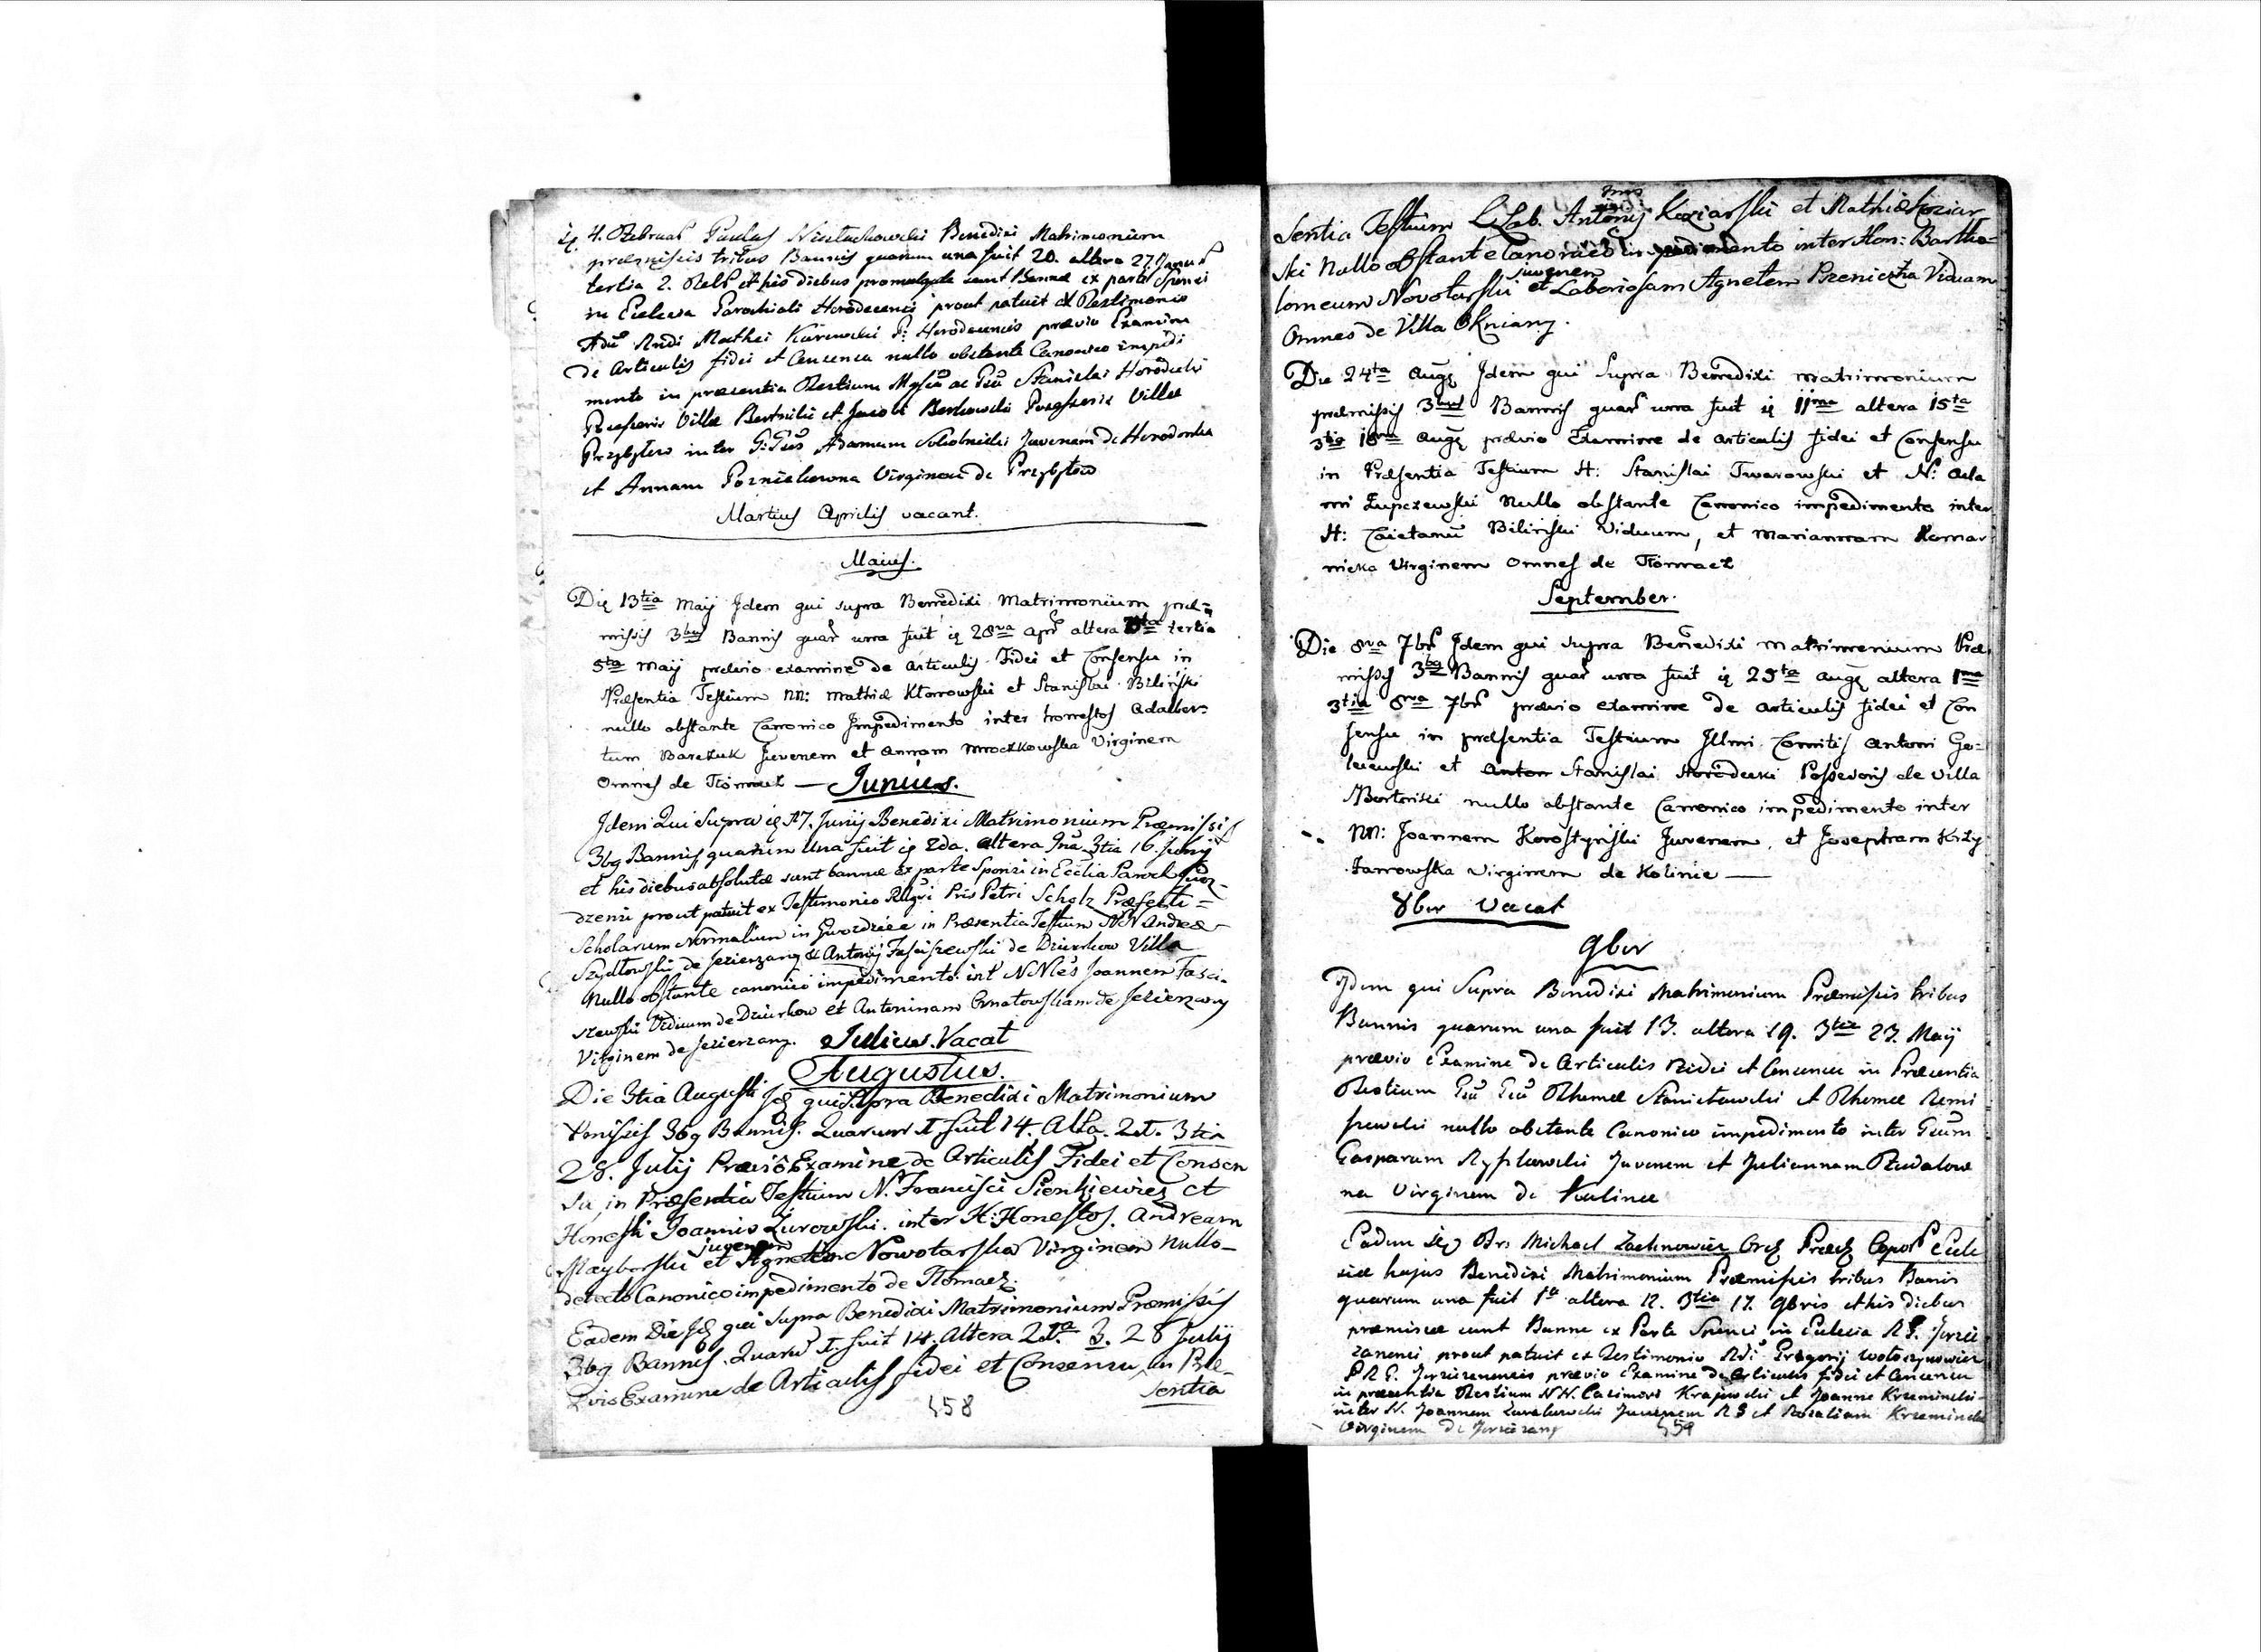 4. Februar Paulus Benedixi Matrimonium
præmissis tribus Bannis quarum una fuit 20. altera 27. Januar
tertia 2. Febr et his diebus promulgatæ sunt Bannæ ex parte Sponsi
in Eclesia Parochiali Horodecensi prout patuit ex Testimonio
Mathei prævio Examine
de Articulis fidei et Consensu nullo obstante Canonico impedi
mento in præsentia Testium Stanislai Horodecki
Possesoris Villæ et Jacobi Villæ
inter Adamum Juvenem de Horodenka
et Annam Virginem de
Martius Aprilis vacant.
Maius.
Die 13tia Maij Idem qui supra Benedixi Matrimonium præ=
missis 3bus Bannis quar una fuit 28va Apr altera tertia
5ta Maij prævio examine de articulis Fidei et Consensu in
Præsentia Testium NN: Mathiæ Klonowski et Stanislai Biliński
nullo obstante Canonico Impedimento inter honestos Adalber=
tum Barczuk Juvenem et Annam Mroczkowska Virginem
Omnes de Tłomacz — Junius.
Idem Qui Supra 17. Junij Benedixi Matrimonium Præmissis
3bg Bannis quarum Una fuit 2da. altera 9na. 3tia 16. Junij
et his diebus absolutæ sunt bannæ ex parte Sponsi in Ecclia Paroch
prout patuit ex Testimonio Petri Scholz Præfecti=
Scholarum Normalium in in Præsentia Testium NN Andreæ
Szydłowski de Jezierzany & Antonij Fasciszewski de Dziurkow Villa
Nullo obstante canonico impedimento int NNles Joannem Fasci-
szewski Viduum de Dziurkow et Antoninam Ornatowskam de Jezierzany
Virginem de Jezierzany. Julius. Vacat
Augustus.
Die 3tia Augusti Id qui Supra Benedixi Matrimonium
3bg Bannis. Quarum I fuit 14. Alta. 21. 3tia
28. Julij Præviô Examine de Articulis Fidei et Consen
su in Præsentia Testium N. Francisci Sienkiewicz et
Honesti Joannis Żurowski. inter H: Honestos. Andream
juvenem
Mayborski et Agnetem Nowotarska Virginem Nullo-
detecto Canonico impedimento de Tłomacz.
Eadem Die Id qui Supra Benedixi Matrimonium Præmissis
3bg Bannis. Quaru I. fuit 14. Altera 21.a 3. 28 Julij
Examine de Articulis fidei et Consensu in Præ-
sentia
458
sentia Testium LLab. Antonij Koziarski et Mathiæ Koziar
ski Nullo obstante Canonico impedimento inter Hon: Bartho=
juvenem
lomeum Novotarski et Laboriosam Agnetem Viduam
Omnes de Villa Okniany.
Die 24ta Aug Idem qui Supra Benedixi matrimonium
præmissis 3bus Bannis quar una fuit 11ma altera 15ta
3tia 18va Aug prævio Examine de articulis fidei et Consensu
in Præsentia Testium H: Stanislai Twarowski et N: Ada
mi Zupczewski nullo obstante Canonico impedimento inter
H: Caietanu Biliński Viduum, et Mariannam Komar
nicka Virginem Omnes de Tłomacz
September.
Die 8va 7br Idem qui supra Benedixi matrimonium Præ
missis 3bg Bannis quar una fuit 25ta Aug altera 1ma
3tia 8va 7br prævio examine de articulis fidei et Con
sensu in præsentia Testium Illmi Comitis Antoni Go=
lejewski et Anton Stanislai Horodecki Possesoris de Villa
nullo obstante Canonico impedimento inter
NN: Joannem Korostyński Juvenem, et Josepham Krzy
żanowska Virginem de Kolinie —
8ber Vacat
9ber
Idem qui Supra Benedixi Matrimonium Præmissis tribus
Bannis quarum una fuit 13. altera 19. 3tia 23. Maij
prævio Examine de Articulis Fidei et Consensu in Præsentia
Testium Thomæ Stanisławski et Thomæ Remi
szewski nullo obstante Canonico impedimento inter
Gasparum Juvenem et Juliannam
na Virginem de Kulince
Eadem Michael Zachnowicz Eccle
siæ hujus Benedixi Matrimonium Præmissis tribus Banis
quarum una fuit 1a altera 12. 3tia 17. 9bris et his diebus
præmissæ sunt Bannæ ex Parte Sponsi in Eclesia
prout patuit ex Testimonio Gregorij
prævio Examine de Articulis fidei et Consensu
in præsentia Testium NN. Casimiri Krajewski et Joanne Krzeminski
inter N. Joannem Juvenem et Rosaliam Krzeminska
Virginem de Jezierzany
459